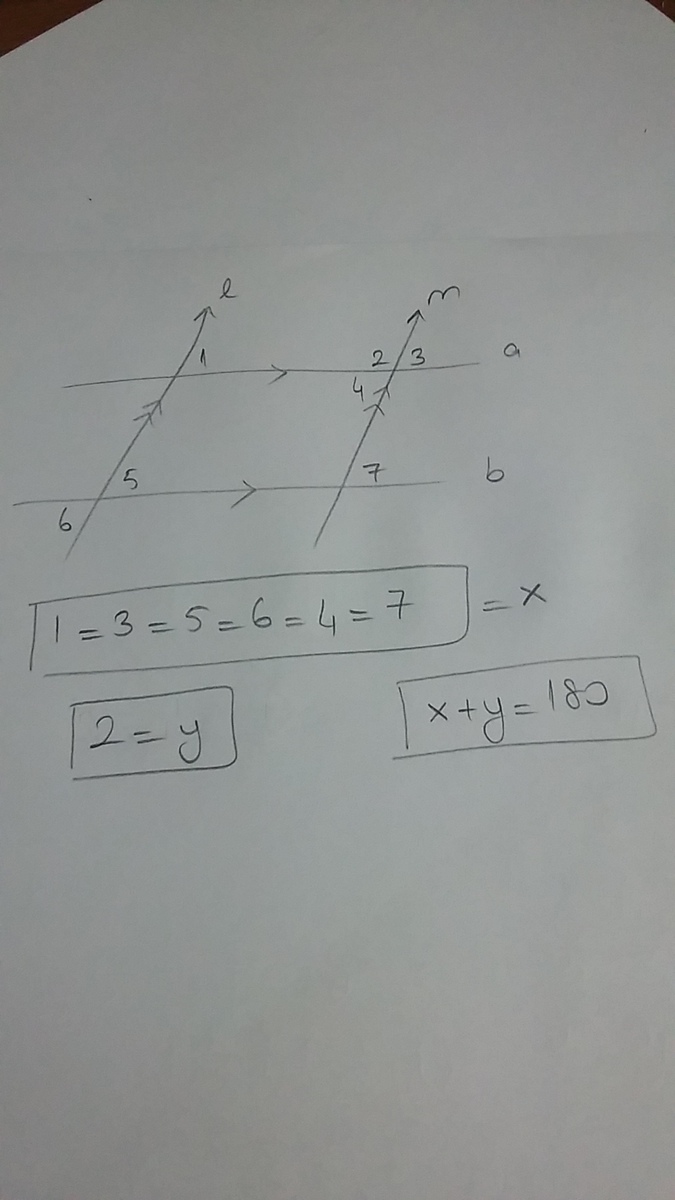 l m
1 2 3 a
4
5 7 b
6
1 = 3 = 5 = 6 = 4 = 7 = x
2 = y x + y = 180